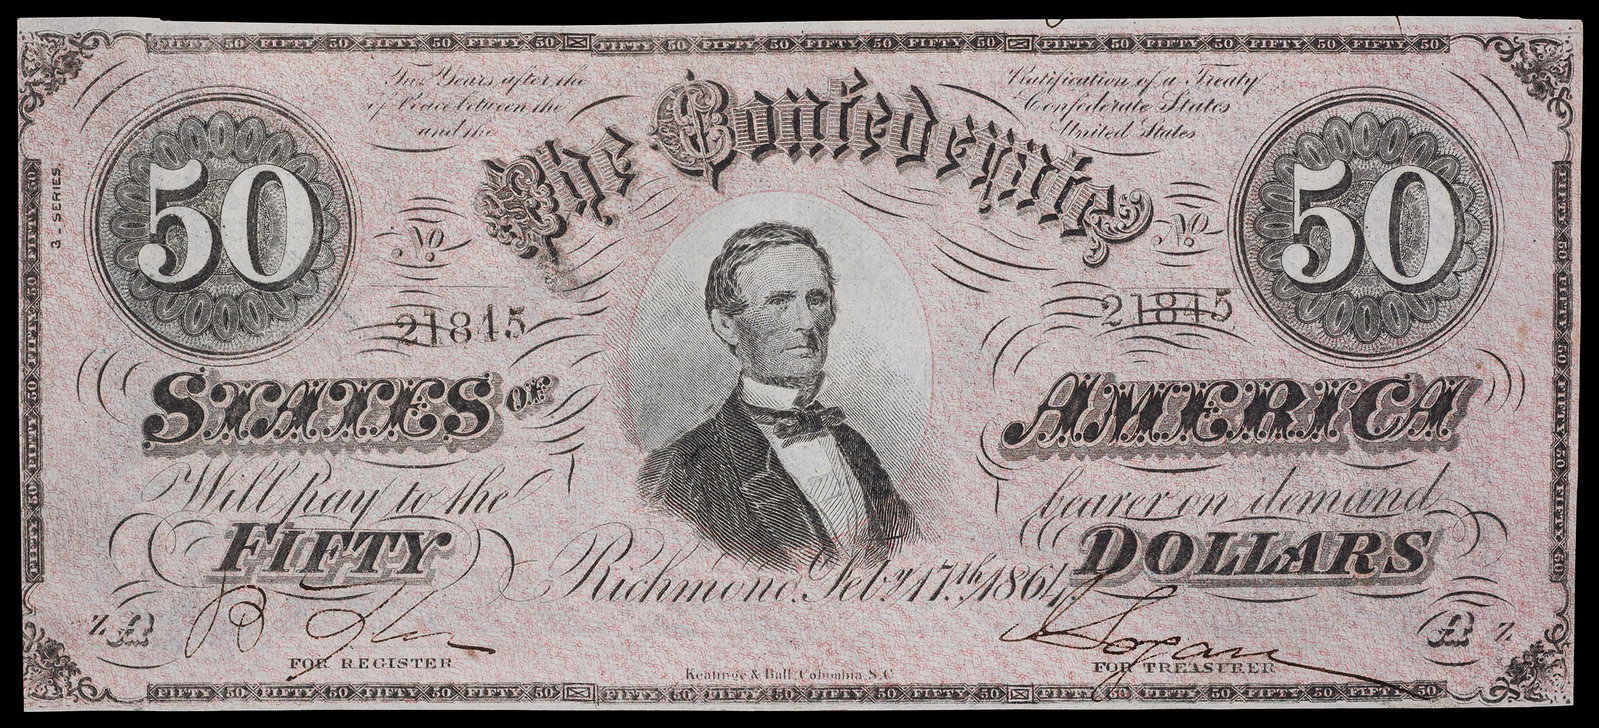 FIFTY 50 FIFTY 50 FIFTY 50 FIFTY 50 FIFTY 50 FIFTY 50 FIFTY 50 FIFTY 50 FIFTY 50 FIFTY 50 FIFTY 50 FIFTY 50
Two Years after the Ratification of a Treaty
of Peace between the Confederate States
and the United States
The Confederate
3 - SERIES.
50
50
No
No
21845
21845
STATES OF AMERICA
Will pay to the bearer on demand
FIFTY DOLLARS
Richmond, Feby. 17th, 1864,
Z A
A Z
FOR REGISTER
FOR TREASURER
Keatinge & Ball, Columbia, S.C.
FIFTY 50 FIFTY 50 FIFTY 50 FIFTY 50 FIFTY 50 FIFTY 50 FIFTY 50 FIFTY 50 FIFTY 50 FIFTY 50 FIFTY 50 FIFTY 50